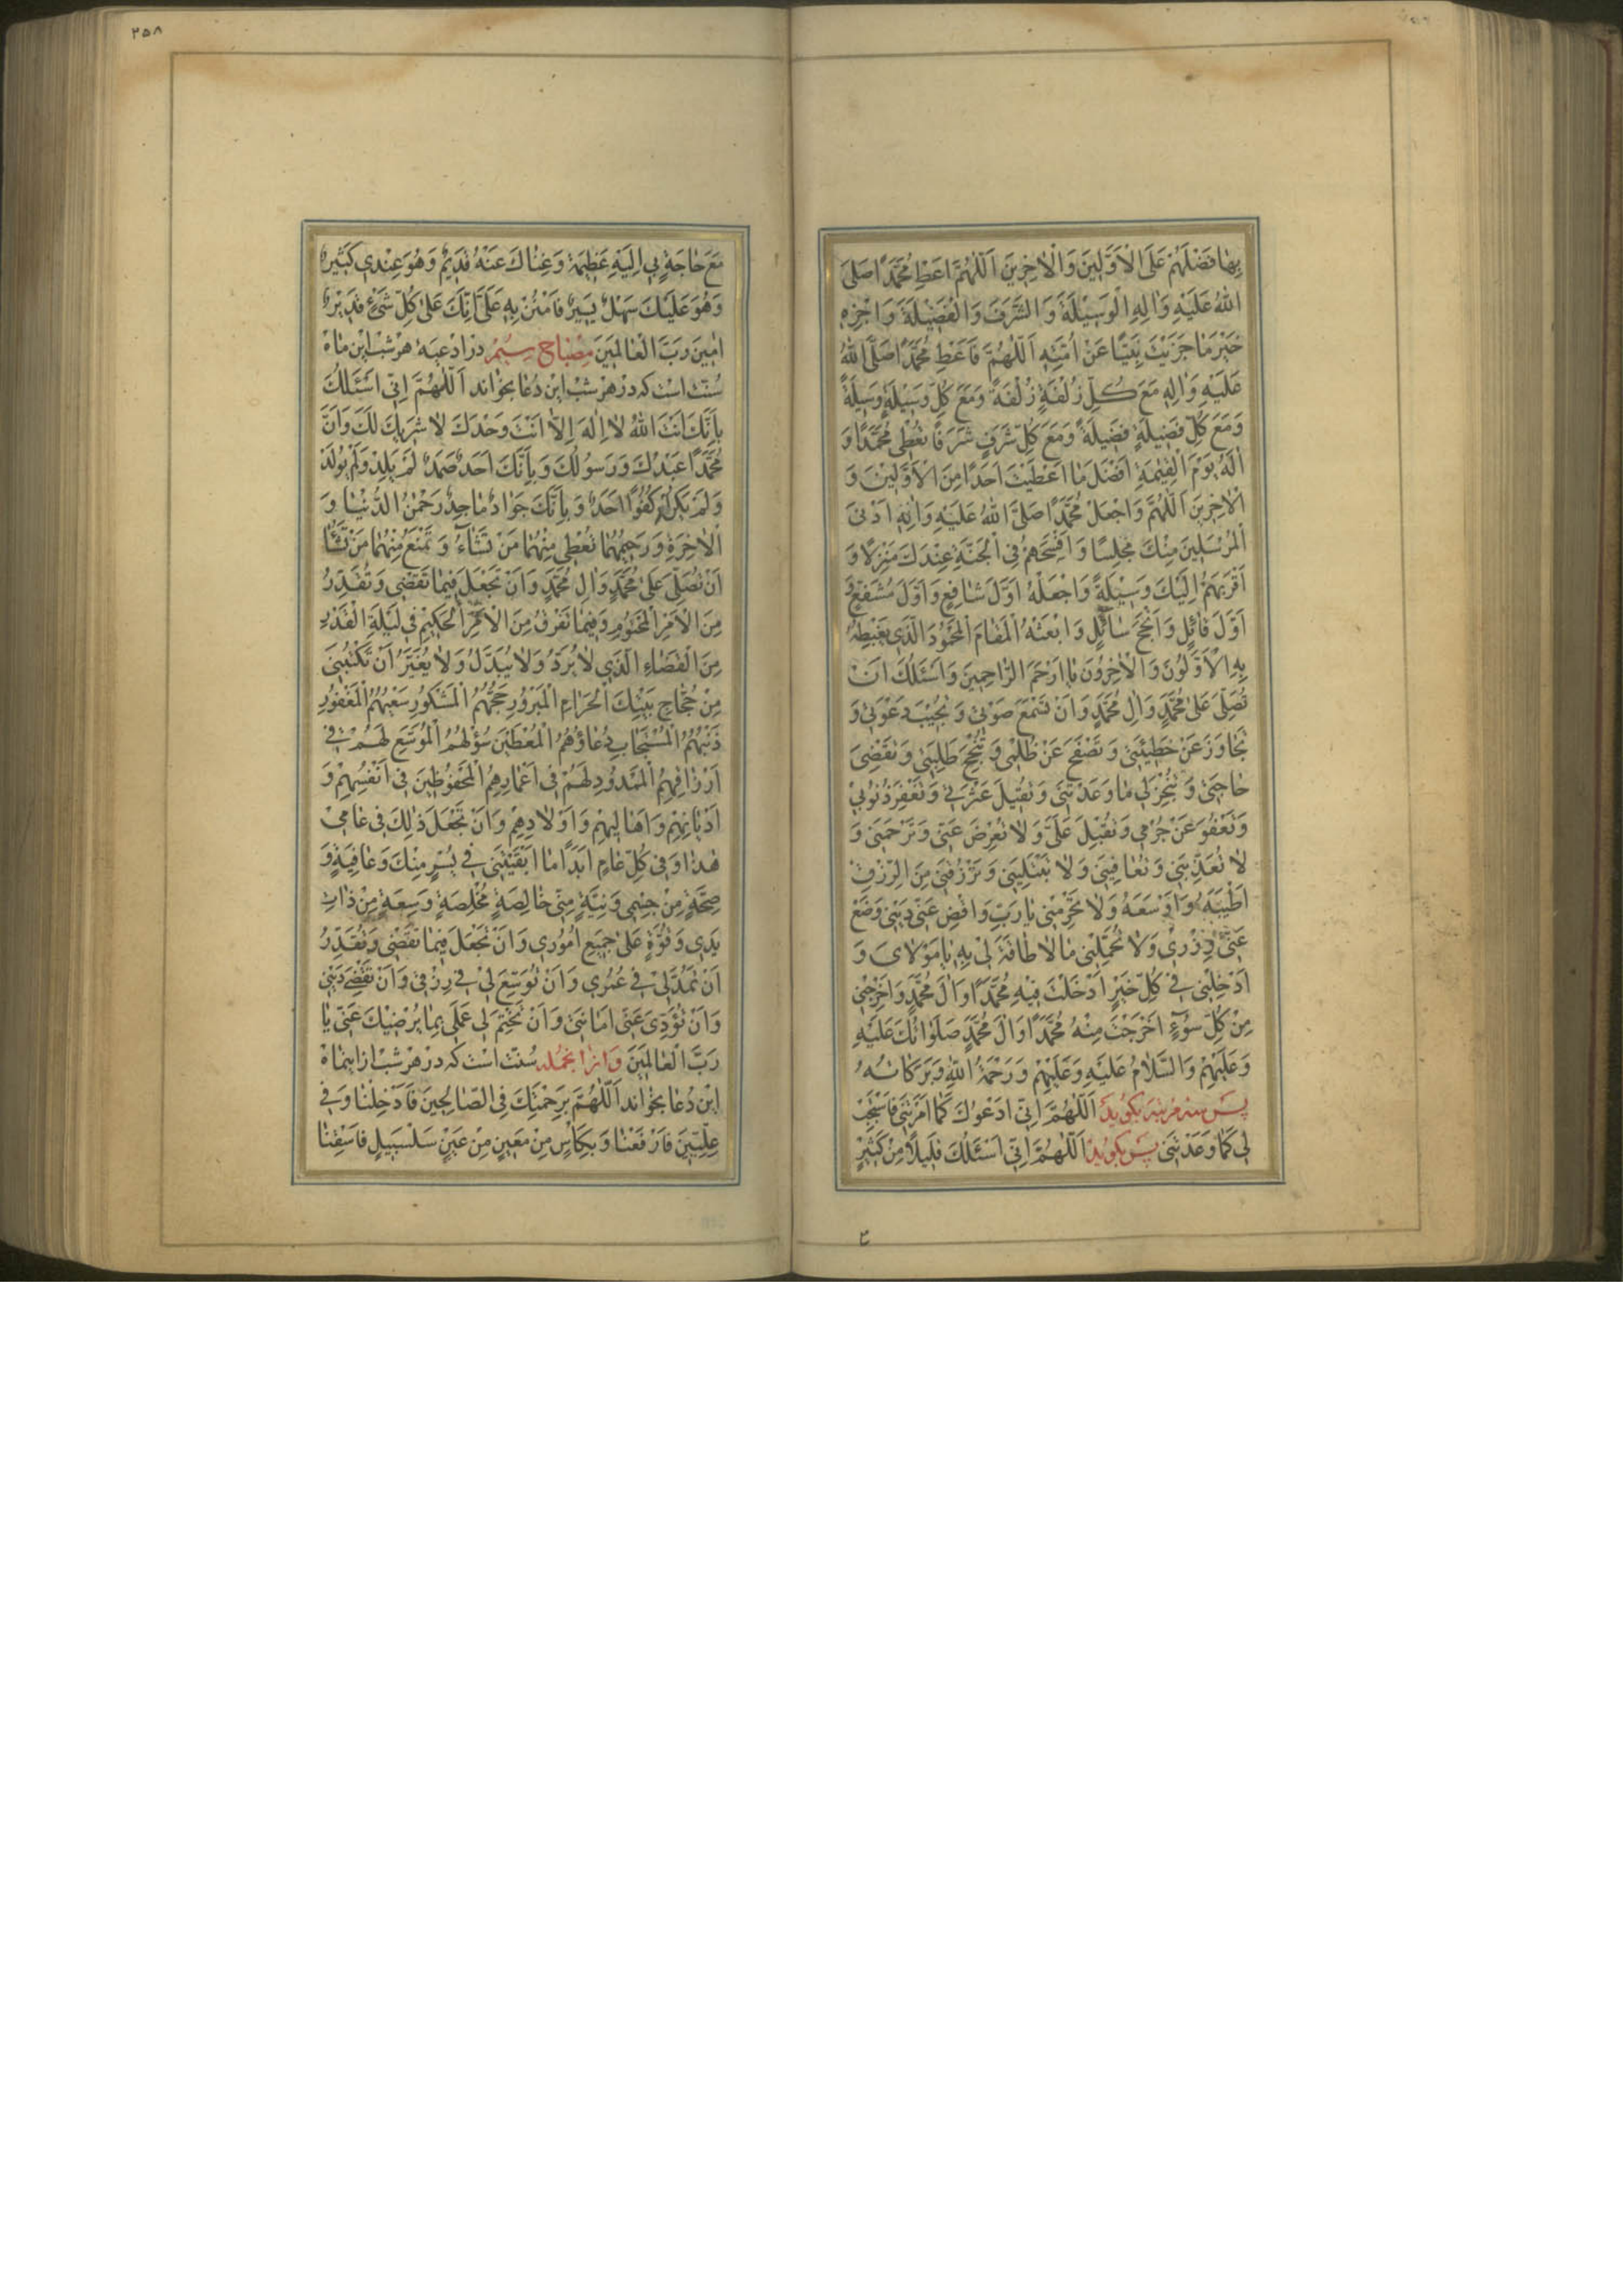 بِهٰا فَضْلَهُمْ عَلَى الْاَوَّلِينَ وَالْاٰخِرِينَ اَللّٰهُمَّ اَعْطِ مُحَمَّدًا صَلَّى
اللّٰهُ عَلَيْهِ وَاٰلِهِ الْوَسِيْلَةَ وَ الشَّرَفَ وَالْفَضِيْلَةَ وَ اجْزِهِ
خَيْرَ مَا جَزَيْتَ نَبِيًّا عَنْ اُمَّتِهِ اَللّٰهُمَّ فَاَعْطِ مُحَمَّدًا صَلَّى اللّٰهُ
عَلَيْهِ وَاٰلِهِ مَعَ كُلِّ زُلْفَةٍ زُلْفَةً وَمَعَ كُلِّ وَسِيْلَةٍ وَسِيلَةً
وَمَعَ كُلِّ فَضِيلَةٍ فَضِيلَةً وَمَعَ كُلِّ شَرَفٍ شَرَفًا تُعْطِى مُحَمَّدًا وَ
اٰلَهُ يَوْمَ الْقِيٰمَةِ اَفْضَلَ مٰا اَعْطَيْتَ اَحَدًا مِنَ الْاَوَّلِينَ وَ
الْاٰخِرِينَ اَللّٰهُمَّ وَاجْعَلْ مُحَمَّدًا صَلَّى اللّٰهُ عَلَيْهِ وَاٰلِهِ اَدْنَى
الْمُرْسَلِينَ مِنْكَ مَجْلِسًا وَ اَفْسَحَهُمْ فِى الْجَنَّةِ عِنْدَكَ مَنْزِلًا وَ
اَقْرَبَهُمْ اِلَيْكَ وَسِيْلَةً وَاجْعَلْهُ اَوَّلَ شٰافِعٍ وَاَوَّلَ مُشَفَّعٍ وَ
اَوَّلَ قٰائِلٍ وَاَنْجَحَ سٰائِلٍ وَ ابْعَثْهُ الْمَقٰامَ الْمَحْمُودَ الَّذِى يَغْبِطُهُ
بِهِ الْاَوَّلُونَ وَ الْاٰخِرُونَ يٰا اَرْحَمَ الرّٰاحِمِينَ وَ اَسْئَلُكَ اَنْ
تُصَلِّىَ عَلىٰ مُحَمَّدٍ وَاٰلِ مُحَمَّدٍ وَ اَنْ تَسْمَعَ صَوْتِى وَ تُجِيْبَ دَعْوَتِى وَ
تَجٰاوَزَ عَنْ خَطِيْئَتِى وَ تَصْفَحَ عَنْ ظُلْمِى وَ تُنْجِحَ طَلِبَتِى وَ تَقْضِىَ
حٰاجَتِى وَ تُنْجِزَ لِى مٰا وَعَدْتَنِى وَ تُقِيْلَ عَثْرَتِى وَ تَغْفِرَ ذُنُوبِى
وَ تَعْفُوَ عَنْ جُرْمِى وَ تُقْبِلَ عَلَىَّ وَ لٰا تُعْرِضَ عَنِّى وَ تَرْحَمَنِى وَ
لٰا تُعَذِّبَنِى وَ تُعٰافِيَنِى وَ لٰا تَبْتَلِيَنِى وَ تَرْزُقَنِى مِنَ الرِّزْقِ
اَطْيَبَهُ وَ اَوْسَعَهُ وَلٰا تَحْرِمْنِى يٰا رَبِّ وَ اقْضِ عَنِّى دَيْنِى وَضَعْ
عَنِّى وِزْرِى وَلٰا تُحَمِّلْنِى مٰا لٰا طٰاقَةَ لِى بِهِ يٰا مَوْلٰاىَ وَ
اَدْخِلْنِى فِى كُلِّ خَيْرٍ اَدْخَلْتَ فِيْهِ مُحَمَّدًا وَ اٰلَ مُحَمَّدٍ وَ اَخْرِجْنِى
مِنْ كُلِّ سُوْءٍ اَخْرَجْتَ مِنْهُ مُحَمَّدًا وَ اٰلَ مُحَمَّدٍ صَلَوٰاتُكَ عَلَيْهِ
وَ عَلَيْهِمْ وَ السَّلٰامُ عَلَيْهِ وَ عَلَيْهِمْ وَ رَحْمَةُ اللّٰهِ وَ بَرَكٰاتُهُ
پس سه مرتبه بگويد اَللّٰهُمَّ اِنِّى اَدْعُوكَ كَمٰا اَمَرْتَنِى فَاسْتَجِبْ
لِى كَمٰا وَعَدْتَنِى پس بگويد اَللّٰهُمَّ اِنِّى اَسْئَلُكَ قَلِيلًا مِنْ كَثِيْرٍ
٢٥٨
مَعَ حٰاجَةٍ بِى اِلَيْهِ عَظِيْمَةٍ وَ غِنٰاكَ عَنْهُ قَدِيمٌ وَ هُوَ عِنْدِى كَثِيْرٌ
وَ هُوَ عَلَيْكَ سَهْلٌ يَسِيْرٌ فَامْنُنْ بِهِ عَلَىَّ اِنَّكَ عَلىٰ كُلِّ شَىْءٍ قَدِيْرٌ
اٰمِينَ رَبَّ الْعٰالَمِينَ مصباح سيم در ادعيهٔ هر شب اين ماه
سنت است كه در هر شب اين دعا بخواند اَللّٰهُمَّ اِنِّى اَسْئَلُكَ
بِاَنَّكَ اَنْتَ اللّٰهُ لٰا اِلٰهَ اِلّٰا اَنْتَ وَحْدَكَ لٰا شَرِيكَ لَكَ وَ اَنَّ
مُحَمَّدًا عَبْدُكَ وَ رَسُولُكَ وَ بِاَنَّكَ اَحَدٌ صَمَدٌ لَمْ يَلِدْ وَلَمْ يُولَدْ
وَ لَمْ يَكُنْ لَهُ كُفُوًا اَحَدٌ وَ بِاَنَّكَ جَوٰادٌ مٰاجِدٌ رَحْمٰنُ الدُّنْيٰا وَ
الْاٰخِرَةِ وَ رَحِيمُهُمٰا تُعْطِى مِنْهُمٰا مَنْ تَشٰاءُ وَ تَمْنَعُ مِنْهُمٰا مَنْ تَشٰاءُ
اَنْ تُصَلِّىَ عَلىٰ مُحَمَّدٍ وَ اٰلِ مُحَمَّدٍ وَ اَنْ تَجْعَلَ فِيمٰا تَقْضِى وَ تُقَدِّرُ
مِنَ الْاَمْرِ الْمَحْتُومِ وَ فِيمٰا تَفْرُقُ مِنَ الْاَمْرِ الْحَكِيْمِ فِى لَيْلَةِ الْقَدْرِ
مِنَ الْقَضٰاءِ الَّذِى لٰا يُرَدُّ وَ لٰا يُبَدَّلُ وَ لٰا يُغَيَّرُ اَنْ تَكْتُبَنِى
مِنْ حُجّٰاجِ بَيْتِكَ الْحَرٰامِ الْمَبْرُورِ حَجُّهُمْ الْمَشْكُورِ سَعْيُهُمْ الْمَغْفُورِ
ذَنْبُهُمْ الْمُسْتَجٰابِ دُعٰاؤُهُمْ الْمُعْطَيْنَ سُؤْلَهُمْ الْمُوَسَّعِ لَهُمْ فِى
اَرْزٰاقِهِمْ الْمَمْدُودِ لَهُمْ فِى اَعْمٰارِهِمْ الْمَحْفُوظِينَ فِى اَنْفُسِهِمْ وَ
اَدْيٰانِهِمْ وَ اَهٰالِيهِمْ وَ اَوْلٰادِهِمْ وَ اَنْ تَجْعَلَ ذٰلِكَ فِى عٰامِى
هٰذٰا وَ فِى كُلِّ عٰامٍ اَبَدًا مٰا اَبْقَيْتَنِى فِى يُسْرٍ مِنْكَ وَ عٰافِيَةٍ وَ
صِحَّةٍ مِنْ جِسْمِى وَ نِيَّةٍ مِنِّى خٰالِصَةٍ مُخْلِصَةٍ وَ سِعَةٍ مِنْ ذٰاتِ
يَدِى وَ قُوَّةٍ عَلىٰ جَمِيعِ اُمُورِى وَ اَنْ تَجْعَلَ فِيمٰا تَقْضِى وَ تُقَدِّرُ
اَنْ تَمُدَّ لِى فِى عُمْرِى وَ اَنْ تُوَسِّعَ لِى فِى رِزْقِى وَ اَنْ تَقْضِىَ دَيْنِى
وَ اَنْ تُؤَدِّىَ عَنِّى اَمٰانَتِى وَ اَنْ تَخْتِمَ لِى عَمَلِى بِمٰا يُرْضِيْكَ عَنِّى يٰا
رَبَّ الْعٰالَمِينَ و از آنجمله سنت است كه در هر شب از اينماه
اين دعا بخواند اَللّٰهُمَّ بِرَحْمَتِكَ فِى الصّٰالِحِينَ فَاَدْخِلْنٰا وَ فِى
عِلِّيِّينَ فَارْفَعْنٰا وَ بِكَاْسٍ مِنْ مَعِينٍ مِنْ عَيْنٍ سَلْسَبِيلٍ فَاسْقِنٰا